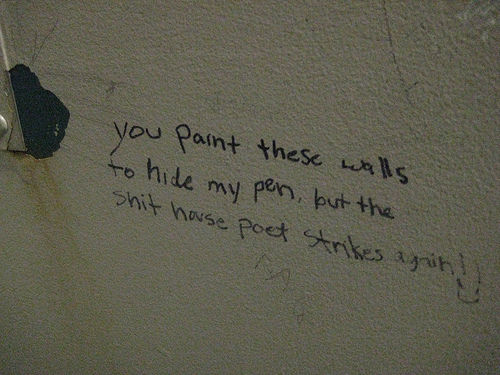 you paint these walls
to hide my pen, but the
shit house poet strikes again!!